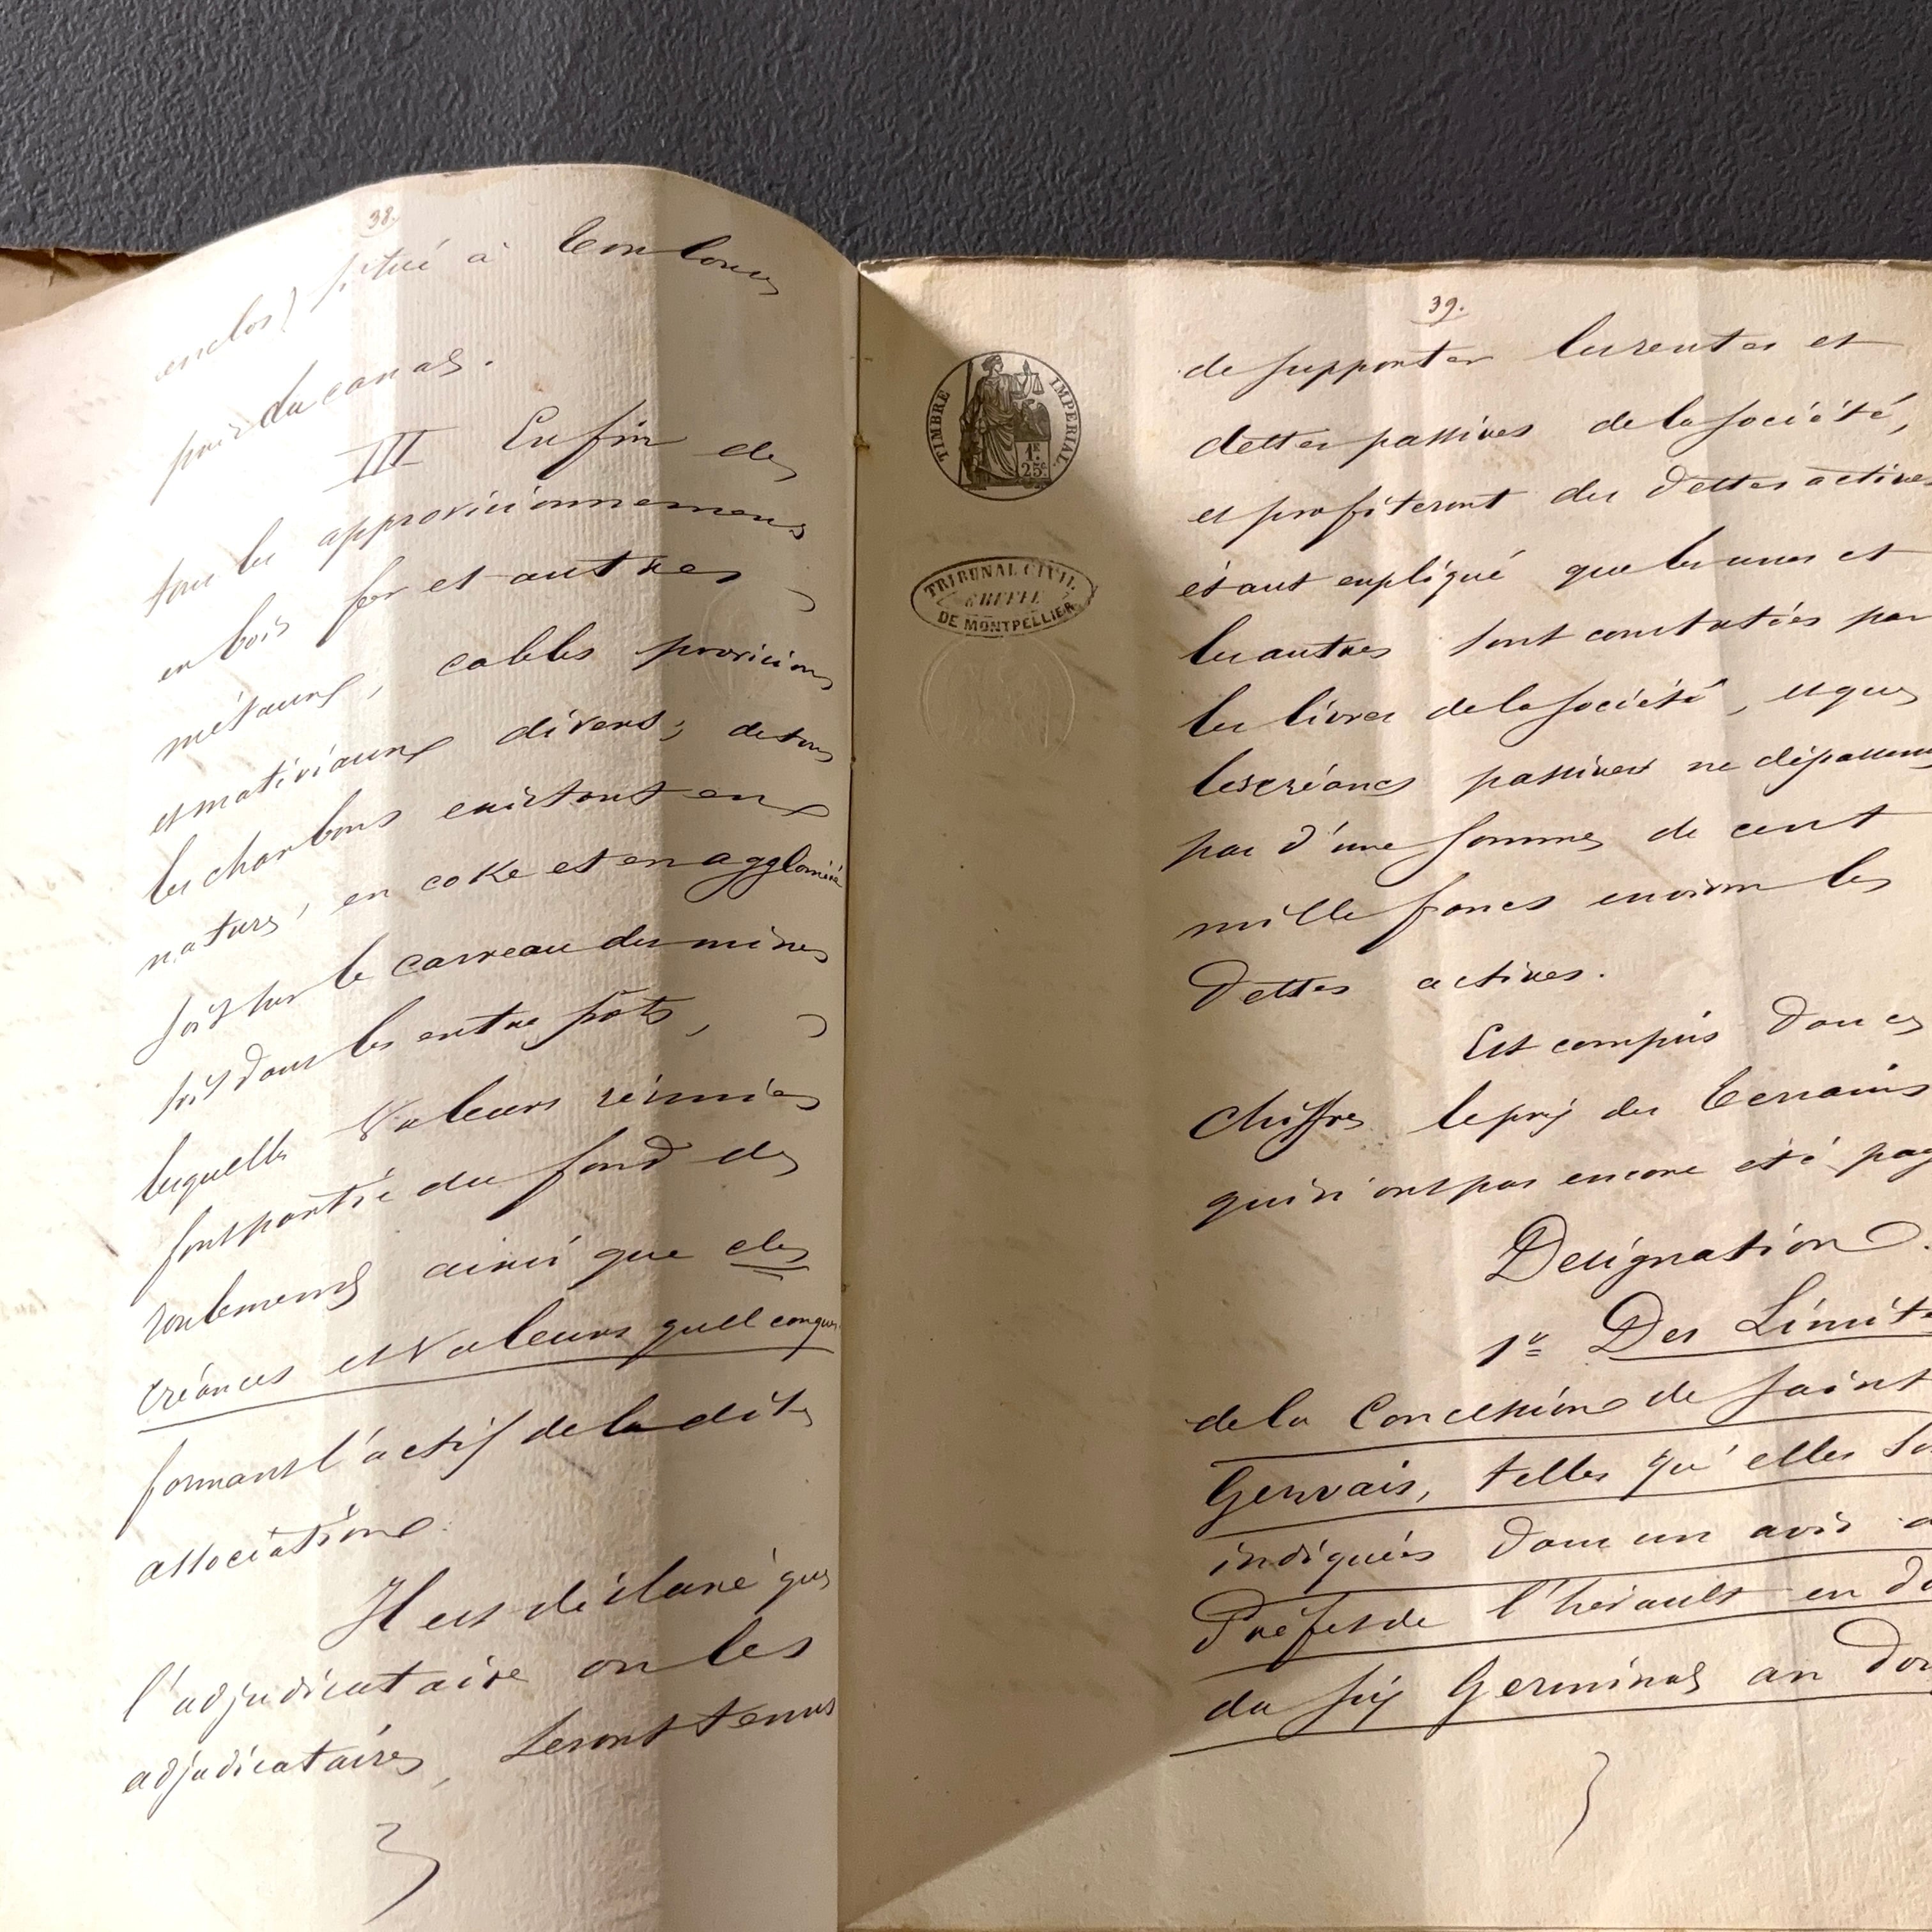 38.
enclos) situé à Toulouse
près du canal.
III Enfin de
tous les approvisionnemens
en bois fer et autres
métaux, cables provisions
et matériaux divers; de tous
les charbons existant en
nature, en coke et en aggloméré
soit sur le carreau des mines
soit dans les entrepôts,
lesquelles Valeurs réunies
font partie du fond de
roulement ainsi que des
créances et Valeurs quelconques
formant l'actif de la dite
association.
Il est déclaré que
l'adjudicataire ou les
adjudicataires, seront tenus
39.
TIMBRE IMPERIAL
1F.
25c.
TRIBUNAL CIVIL
GREFFE
DE MONTPELLIER
de supporter les rentes et
dettes passives de la société,
et profiteront des Dettes actives
étant expliqué que les unes et
les autres sont constatées par
les livres de la société, et que
les créances passives ne dépassent
pas d'une somme de cent
mille francs environ les
Dettes actives.
Est compris dans ce
Chiffre le prix des terrains
qui n'ont pas encore été
Designation.
1º Des Limites
de la Concession de Saint
Gervais, telles qu'elles
indiquées dans un avis
Préfet de l'hérault en
du six Germinal an